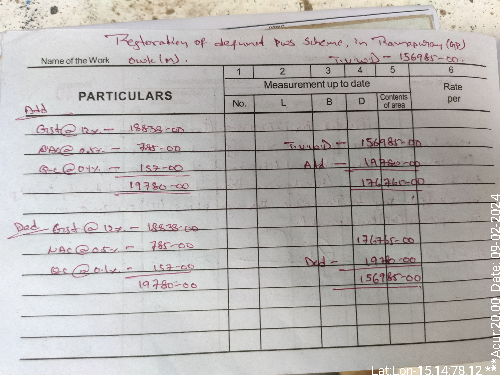 Restoration of defunct pws scheme, in Ramapuram (GP)
Name of the Work owk (M). T.v.w.D - 156985-00.
1 2 3 4 5 6
PARTICULARS Measurement up to date Rate per
No. L B D Contents of area
Add
Gst @ 12%. - 18838-00
NAC @ 0.5%. - 785-00 T.v.w.D - 156985-00
Qc @ 0.1%. - 157-00 Add - 19780-00
19780-00 176765-00
Ded - Gst @ 12%. - 18838-00
NAC @ 0.5%. - 785-00 176765-00
Qc @ 0.1%. - 157-00 Ded - 19780-00
19780-00 156985-00
***Acur:20.00 Date: 09-02-2024
Lat:Lon-15.14:78.12